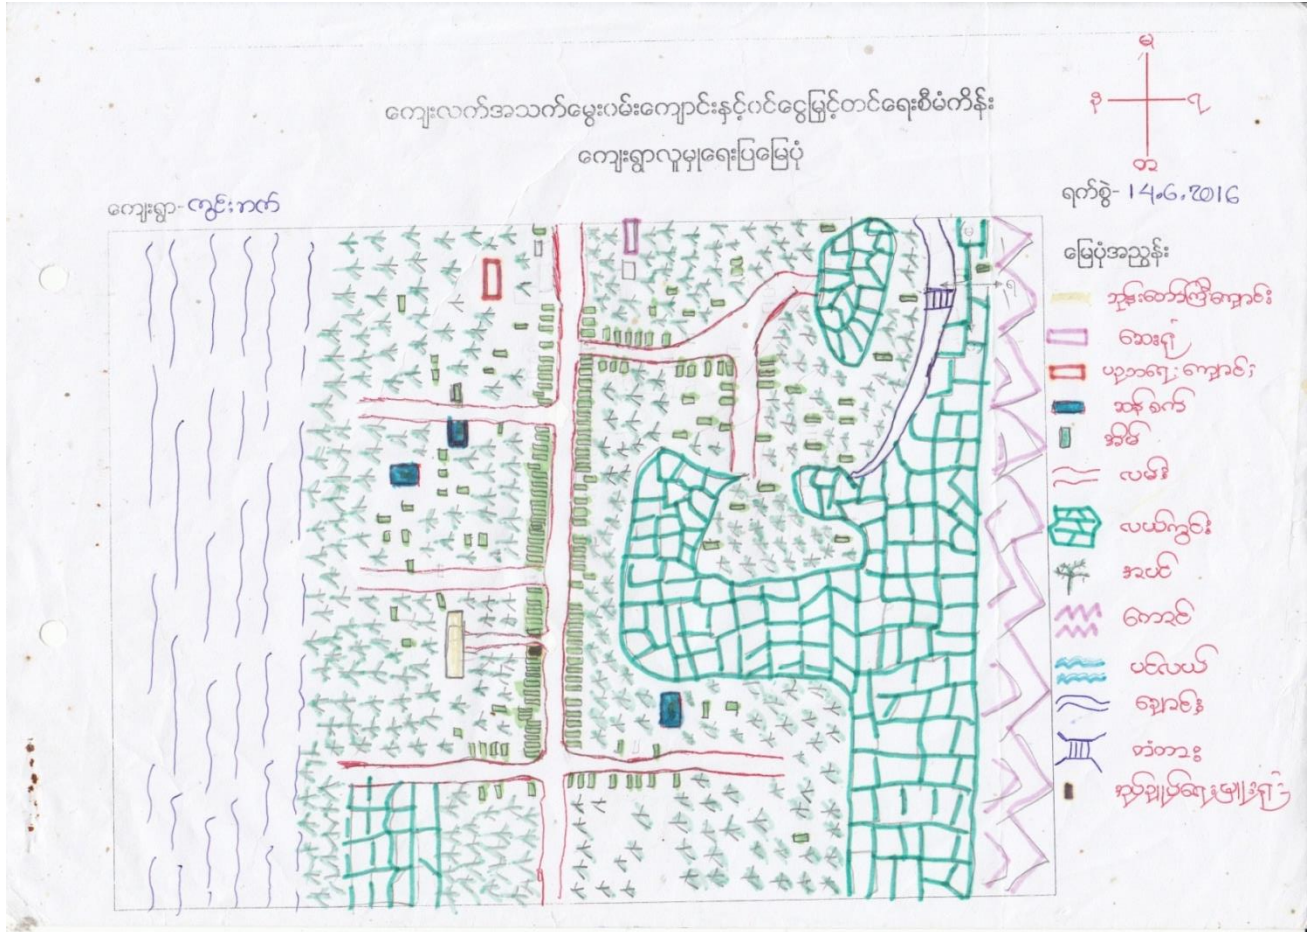 မ
န
ရ
တ
ကျေးလက်အသက်မွေးဝမ်းကျောင်းနှင့်ဝင်ငွေမြှင့်တင်ရေးစီမံကိန်း
ကျေးရွာလူမှုရေးပြမြေပုံ
ကျေးရွာ-
ရက်စွဲ- 14.6.2016
မြေပုံအညွှန်း
ဘုန်းတော်ကြီးကျောင်း
ဆေးရုံ
ပညာရေးကျောင်း
ဆန်စက်
အိမ်
လမ်း
လယ်ကွင်း
အပင်
တောင်
ပင်လယ်
ချောင်း
တံတား
အုပ်ချုပ်ရေးမှူးရုံး